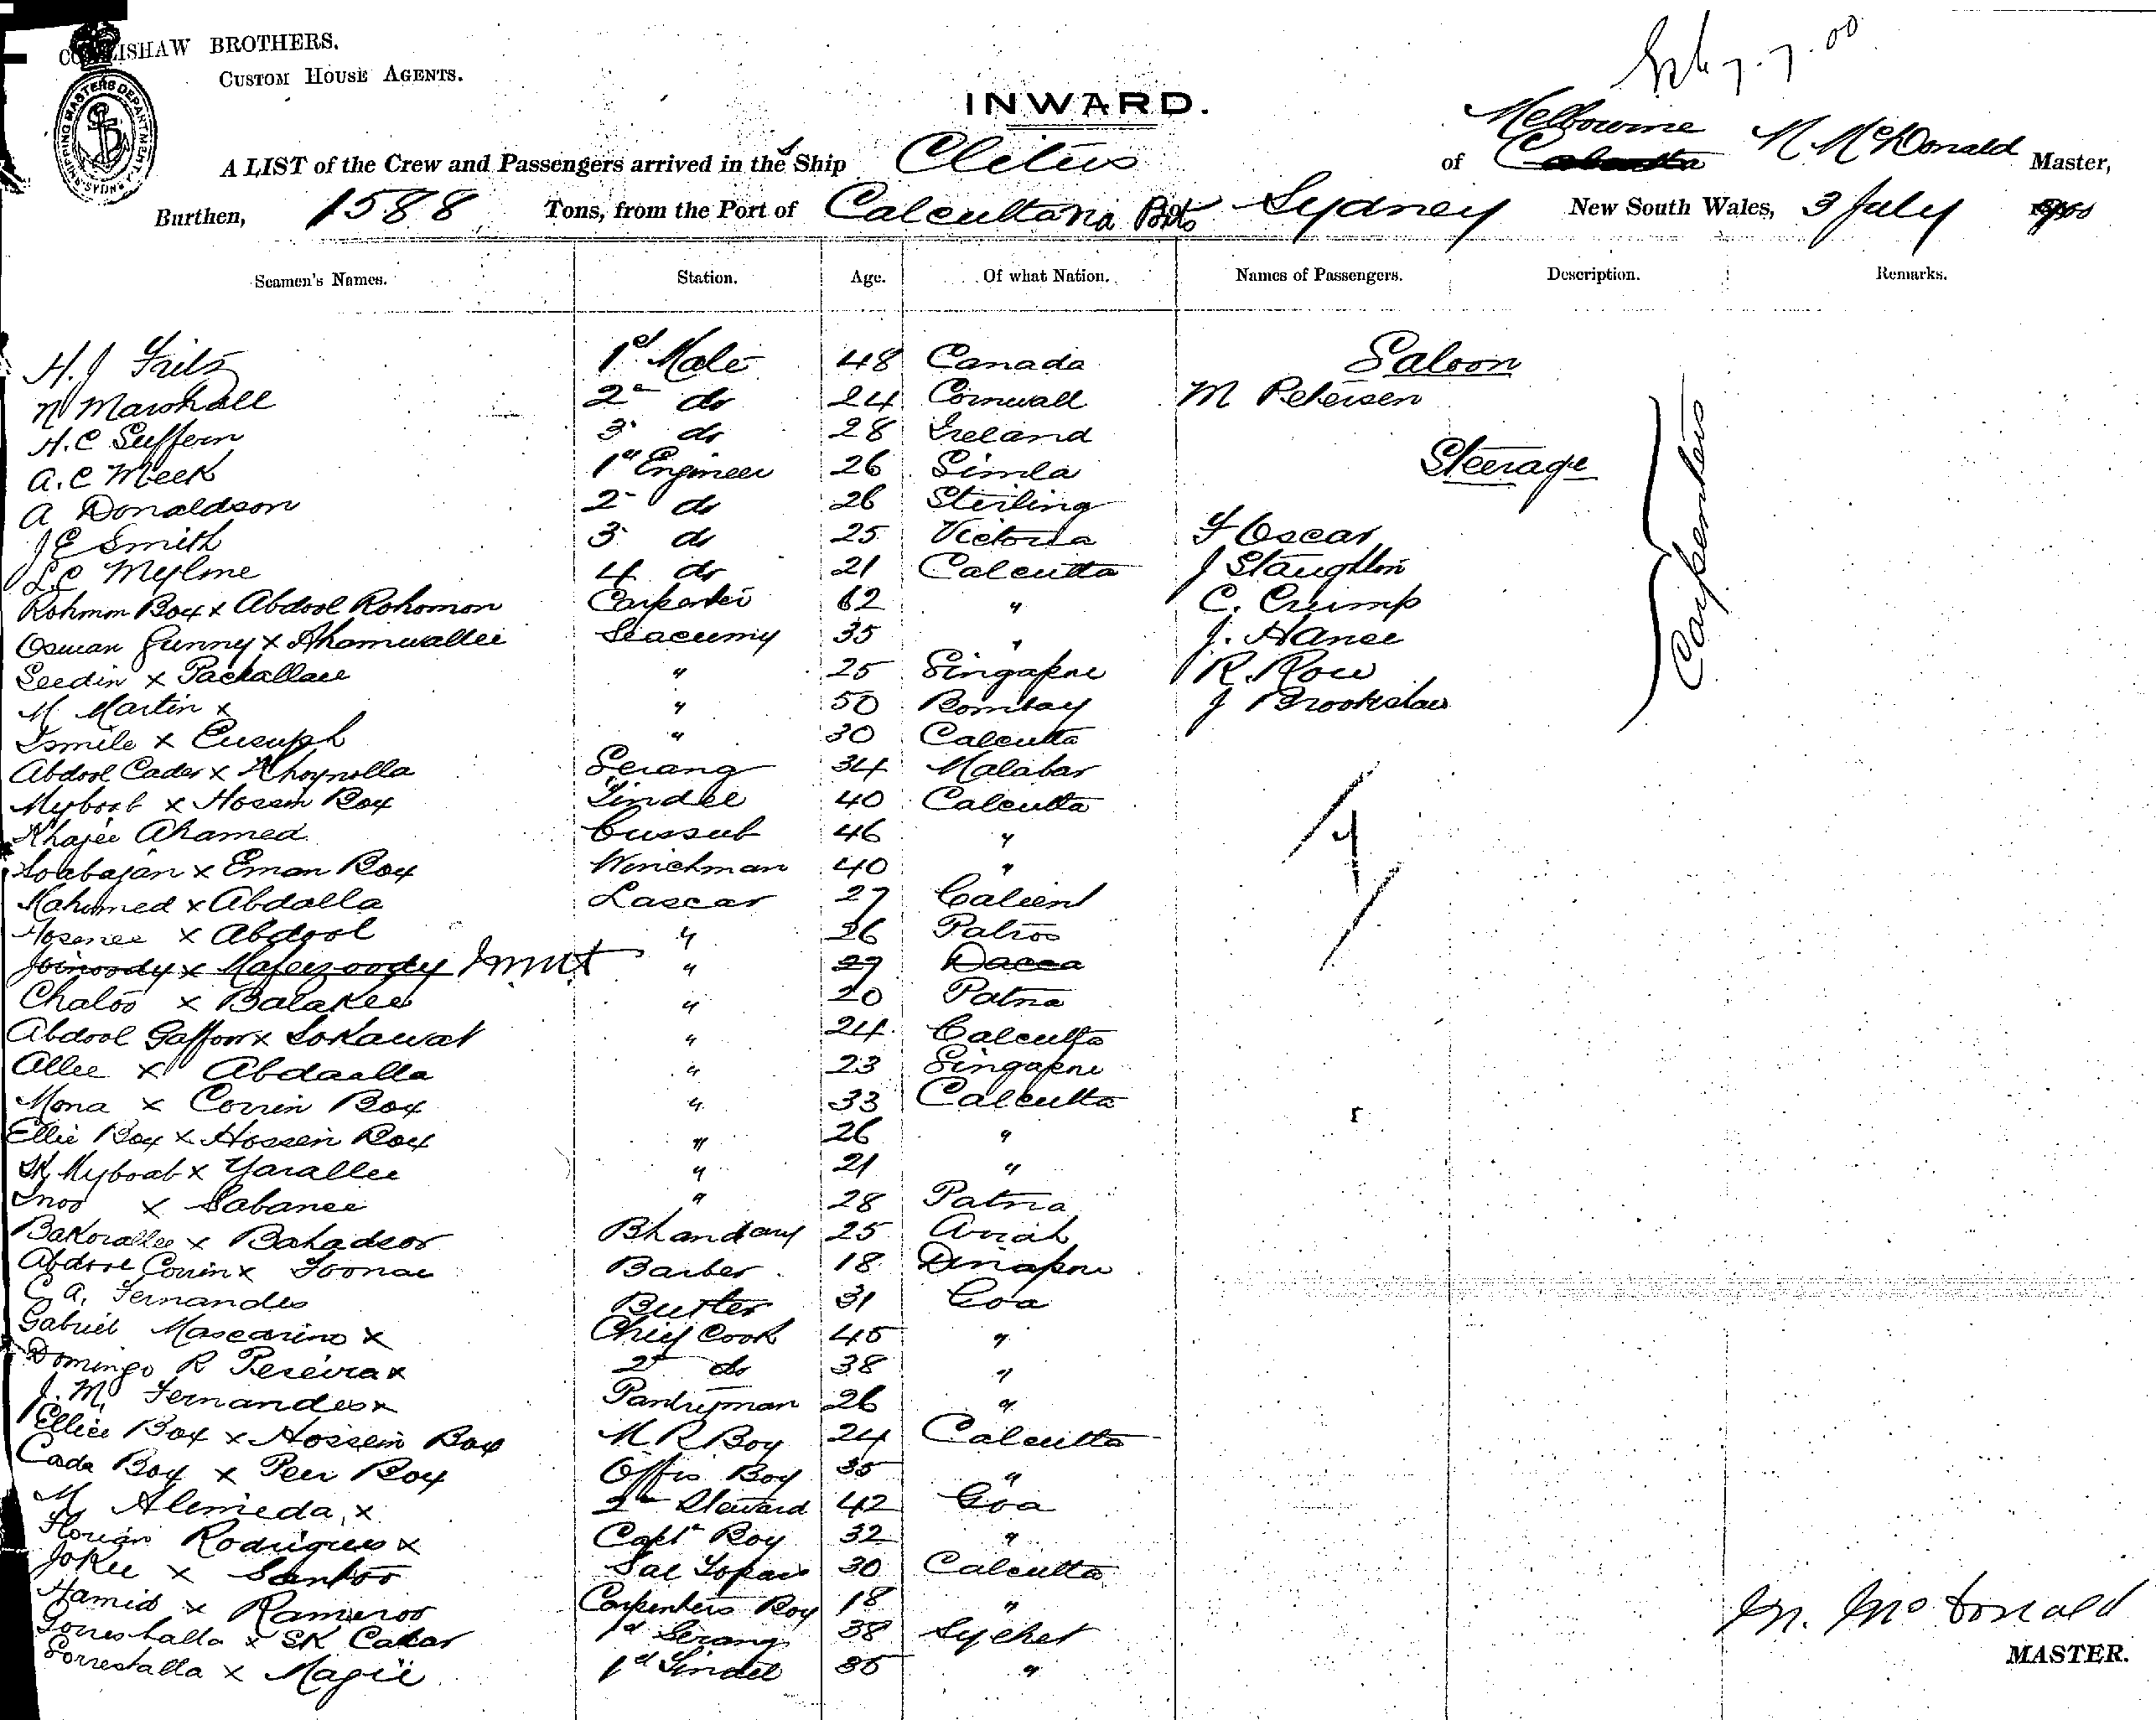 BROTHERS.
CUSTOM HOUSE AGENTS.
SHIPPING MASTERS DEPARTMENT SYDNEY
7.7.00
INWARD.
A LIST of the Crew and Passengers arrived in the Ship Clitus of Melbourne M. McDonald Master,
Burthen, 1588 Tons, from the Port of Calcutta via Ports Sydney New South Wales, 3 July
Seamen's Names. Station. Age. Of what Nation. Names of Passengers. Description. Remarks.
H. J Fritz 1st Mate 48 Canada Saloon
N Marshall 2 do 24 Cornwall M Petersen
H. C Suffern 3 do 28 Ireland
A. C Meek 1st Engineer 26 Simla Steerage
A Donaldson 2 do 26 Sterling
J E Smith 3 do 25 Victoria F Oscar
L. C Mylne 4 do 21 Calcutta J Staughton
Rohmon Box x Abdool Rohomon Carpenter 62 " C. Crump
Osman Gunny x Seacunny 35 " J. Hance
Seedin x 25 Singapore R. Row
M Martin x " 50 Bombay J Brookshaw
Carpenters
Ismile x Eusuph " 30 Calcutta
Abdool Cader x Serang 34 Malabar
Myboob x Hossein Box Tindel 40 Calcutta
Khajee Ahamed Cussub 46 "
x Eman Box Winchman 40 "
Mahomed x Abdalla Lascar 27
x Abdool " 26
x " 29 Dacca
Chaloo x Balakee " 20 Patna
Abdool Gaffoor x Sokawat " 24 Calcutta
Allee x Abdaalla " 23 Singapore
Mona x Corrin Box " 33 Calcutta
Ellie Box x Hossein Box " 26 "
SK Myboob x Yarallee " 21 "
x Sabanee " 28 Patna
Bakorallee x Bahadoor Bhandary 25
Abdool x Barber 18 Dinapore
C. A. Fernandes Butler 31 Goa
Gabriel Mascarino x Chief Cook 45 "
Domingo R Pereira x 2 do 38 "
J. M. Fernandes x Pantryman 26 "
Ellice Box x Hossein Box M R Boy 24 Calcutta
Cada Box x Peer Box Offis Boy 35 "
M Alemeda, x 2nd Steward 42 Goa
Florian Rodrigues x Capt Boy 32 "
Jokee x Santoo Sal Topas 30 Calcutta
Hamid x Carpenters Boy 18 "
x SK 1st Serang 38 Sychet
x Magii 1st Tindel 35 "
M. McDonald
MASTER.